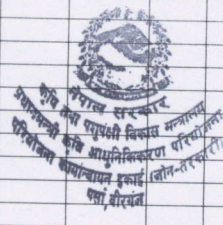 नेपाल सरकार
कृषि तथा पशुपंक्षी विकास मन्त्रालय
प्रधानमन्त्री कृषि आधुनिकिकरण परियोजना
परियोजना कार्यान्वयन इकाई (जोन-तरकारी)
पर्सा, वीरगंज